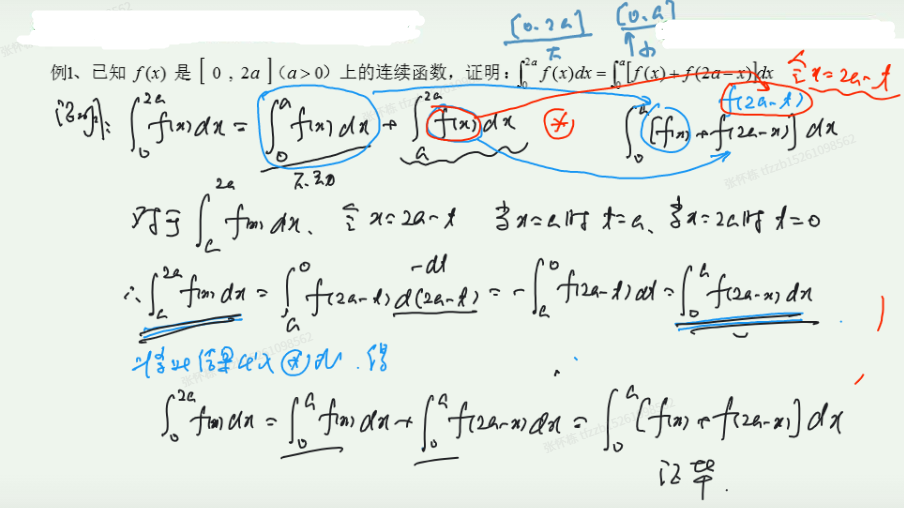 [0.2a] [0.a]
大 小
例1、已知 f(x) 是 [ 0 , 2a ](a>0) 上的连续函数，证明：∫₀²ᵃ f(x)dx = ∫₀ᵃ[f(x)+f(2a-x)]dx 令x=2a-t
f(2a-t)
证明: ∫₀²ᵃ f(x)dx = ∫₀ᵃ f(x)dx + ∫ₐ²ᵃ f(x)dx (*) ∫₀ᵃ [f(x)+f(2a-x)]dx
不动
对于 ∫ₐ²ᵃ f(x)dx、令 x=2a-t 当x=a时 t=a、当x=2a时 t=0
-dt
∴ ∫ₐ²ᵃ f(x)dx = ∫ₐ⁰ f(2a-t)d(2a-t) = -∫ₐ⁰ f(2a-t)dt = ∫₀ᵃ f(2a-x)dx
将此结果代入(*)式.得
∫₀²ᵃ f(x)dx = ∫₀ᵃ f(x)dx + ∫₀ᵃ f(2a-x)dx = ∫₀ᵃ [f(x)+f(2a-x)]dx
证毕.
张怀栋 tfzzb15261098562